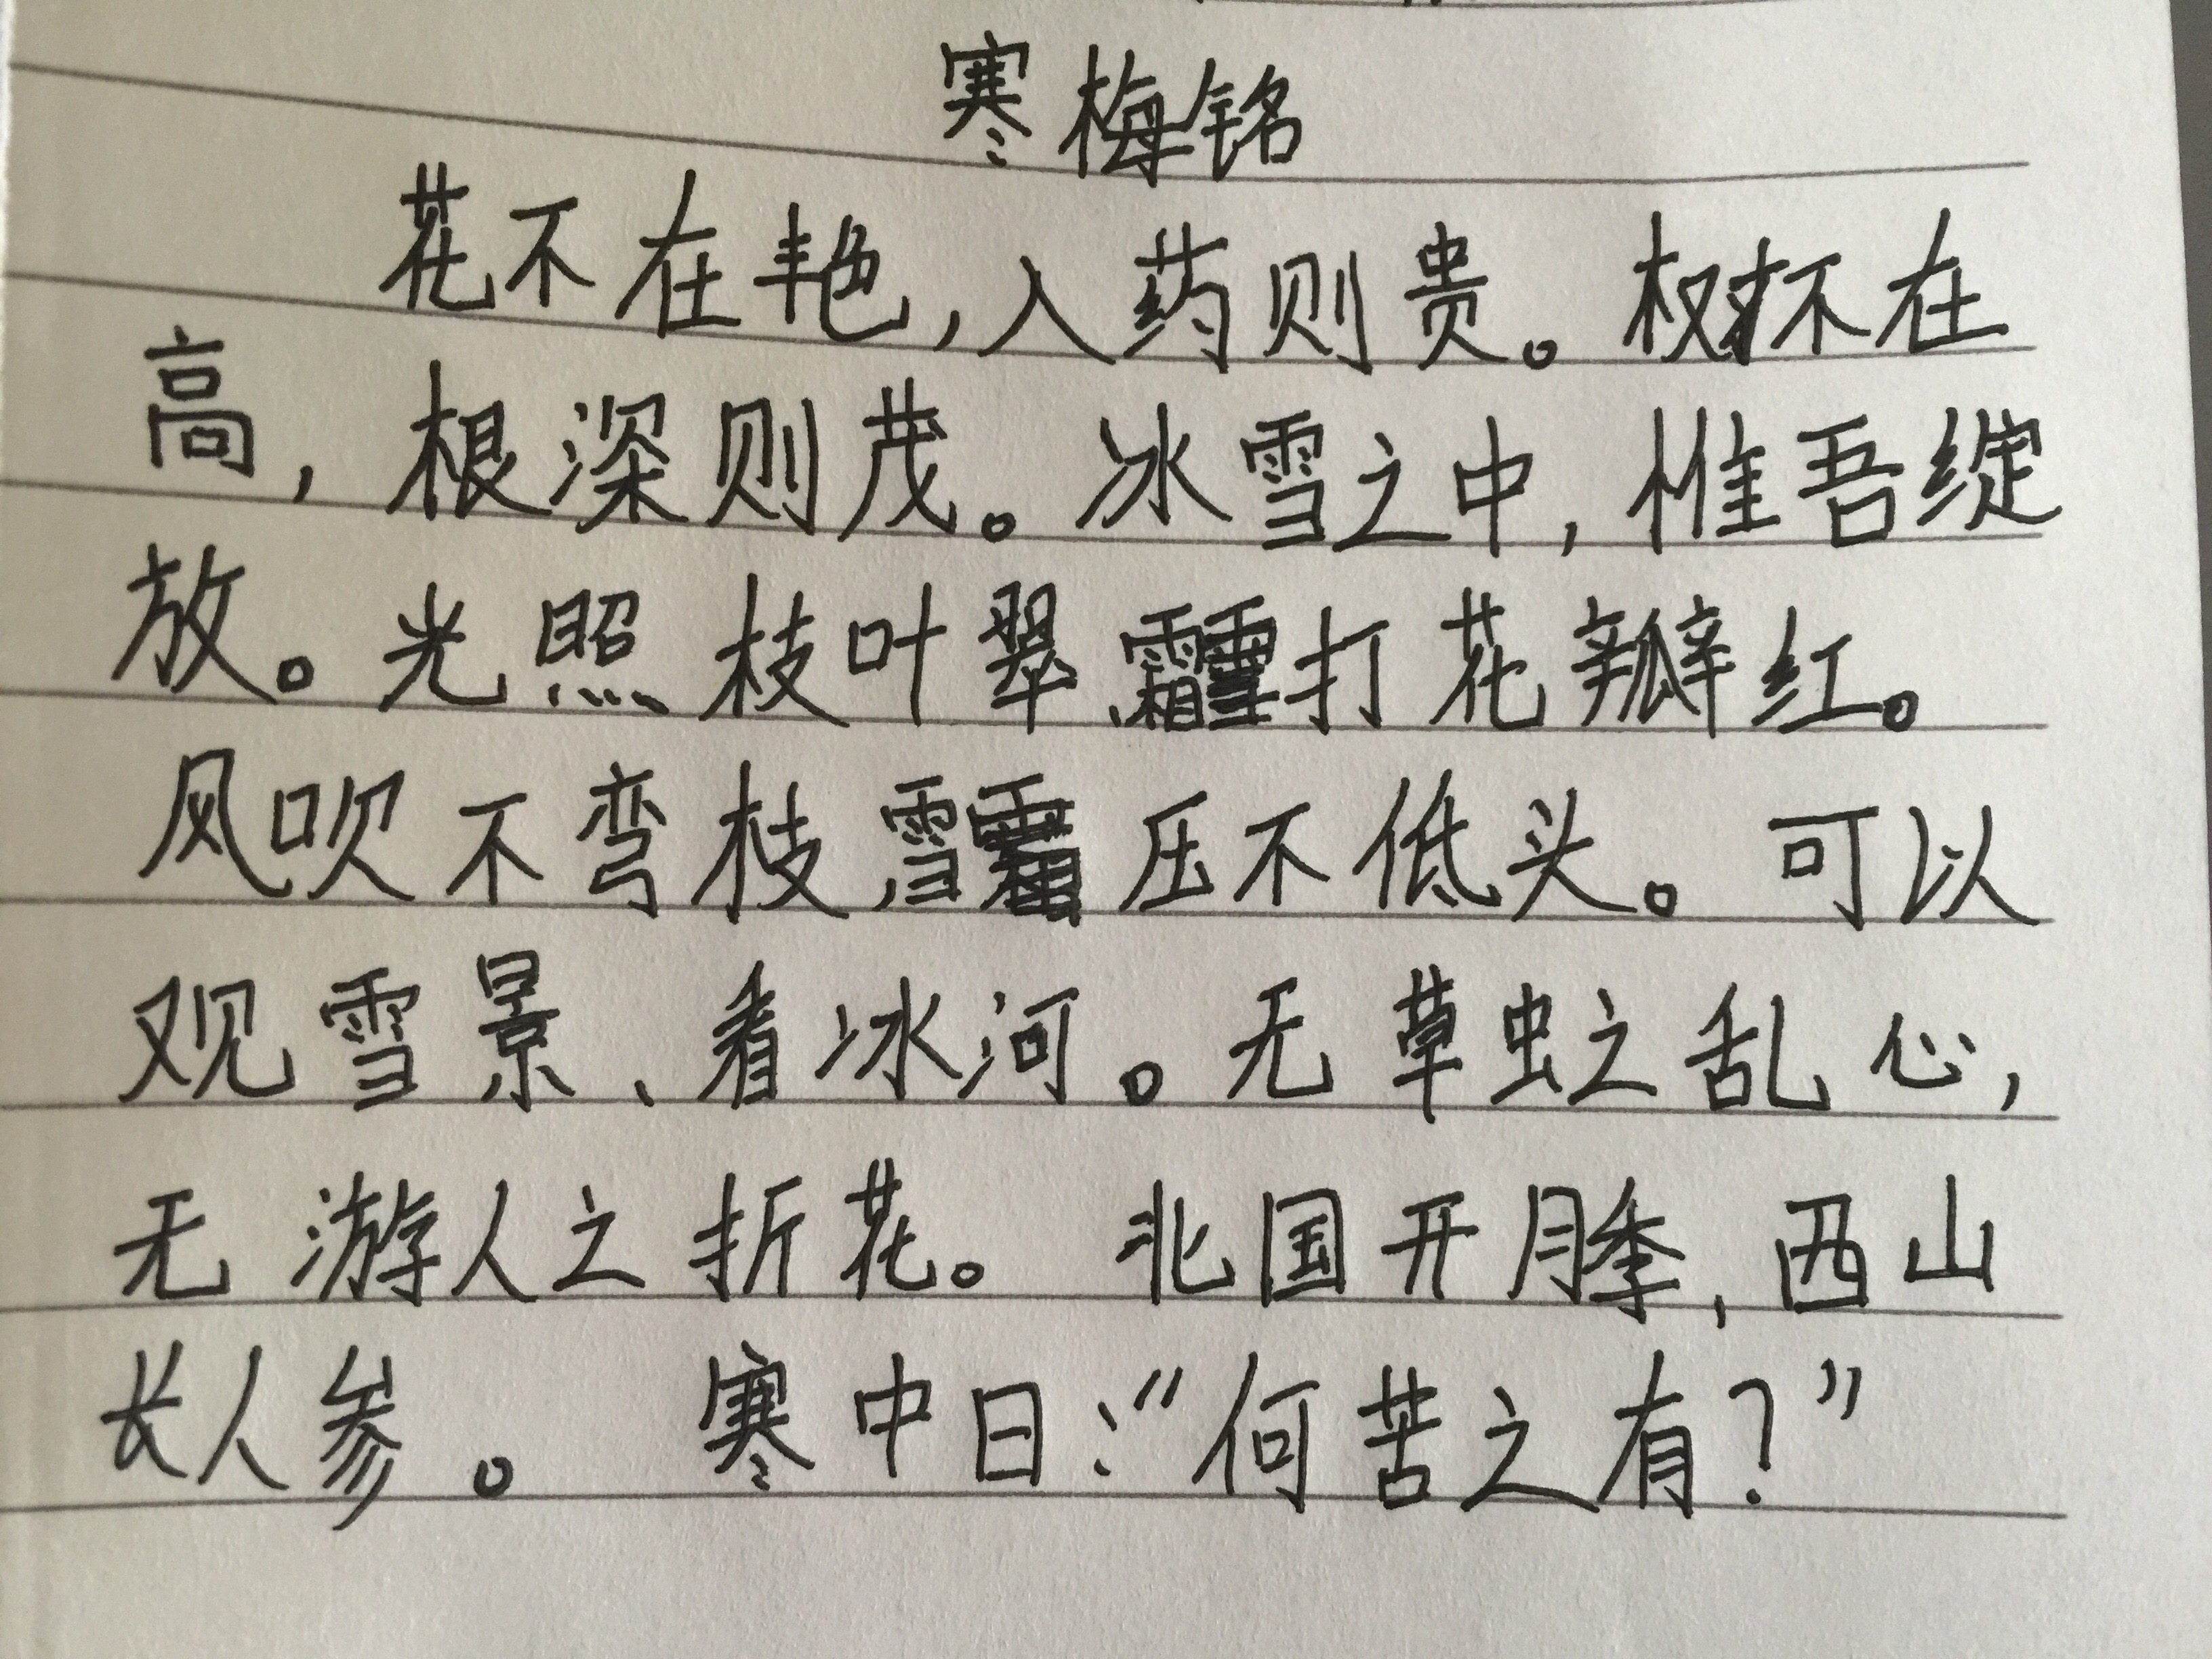 寒梅铭
花不在艳,入药则贵。树不在
高,根深则茂。冰雪之中,惟吾绽
放。光照枝叶翠、霜打花瓣红。
风吹不弯枝,雪压不低头。可以
观雪景、看冰河。无草虫之乱心,
无游人之折花。北国开月季,西山
长人参。寒中曰:“何苦之有?”